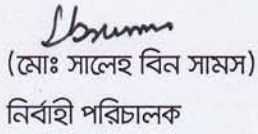 (মোঃ সালেহ বিন সামস)
নির্বাহী পরিচালক